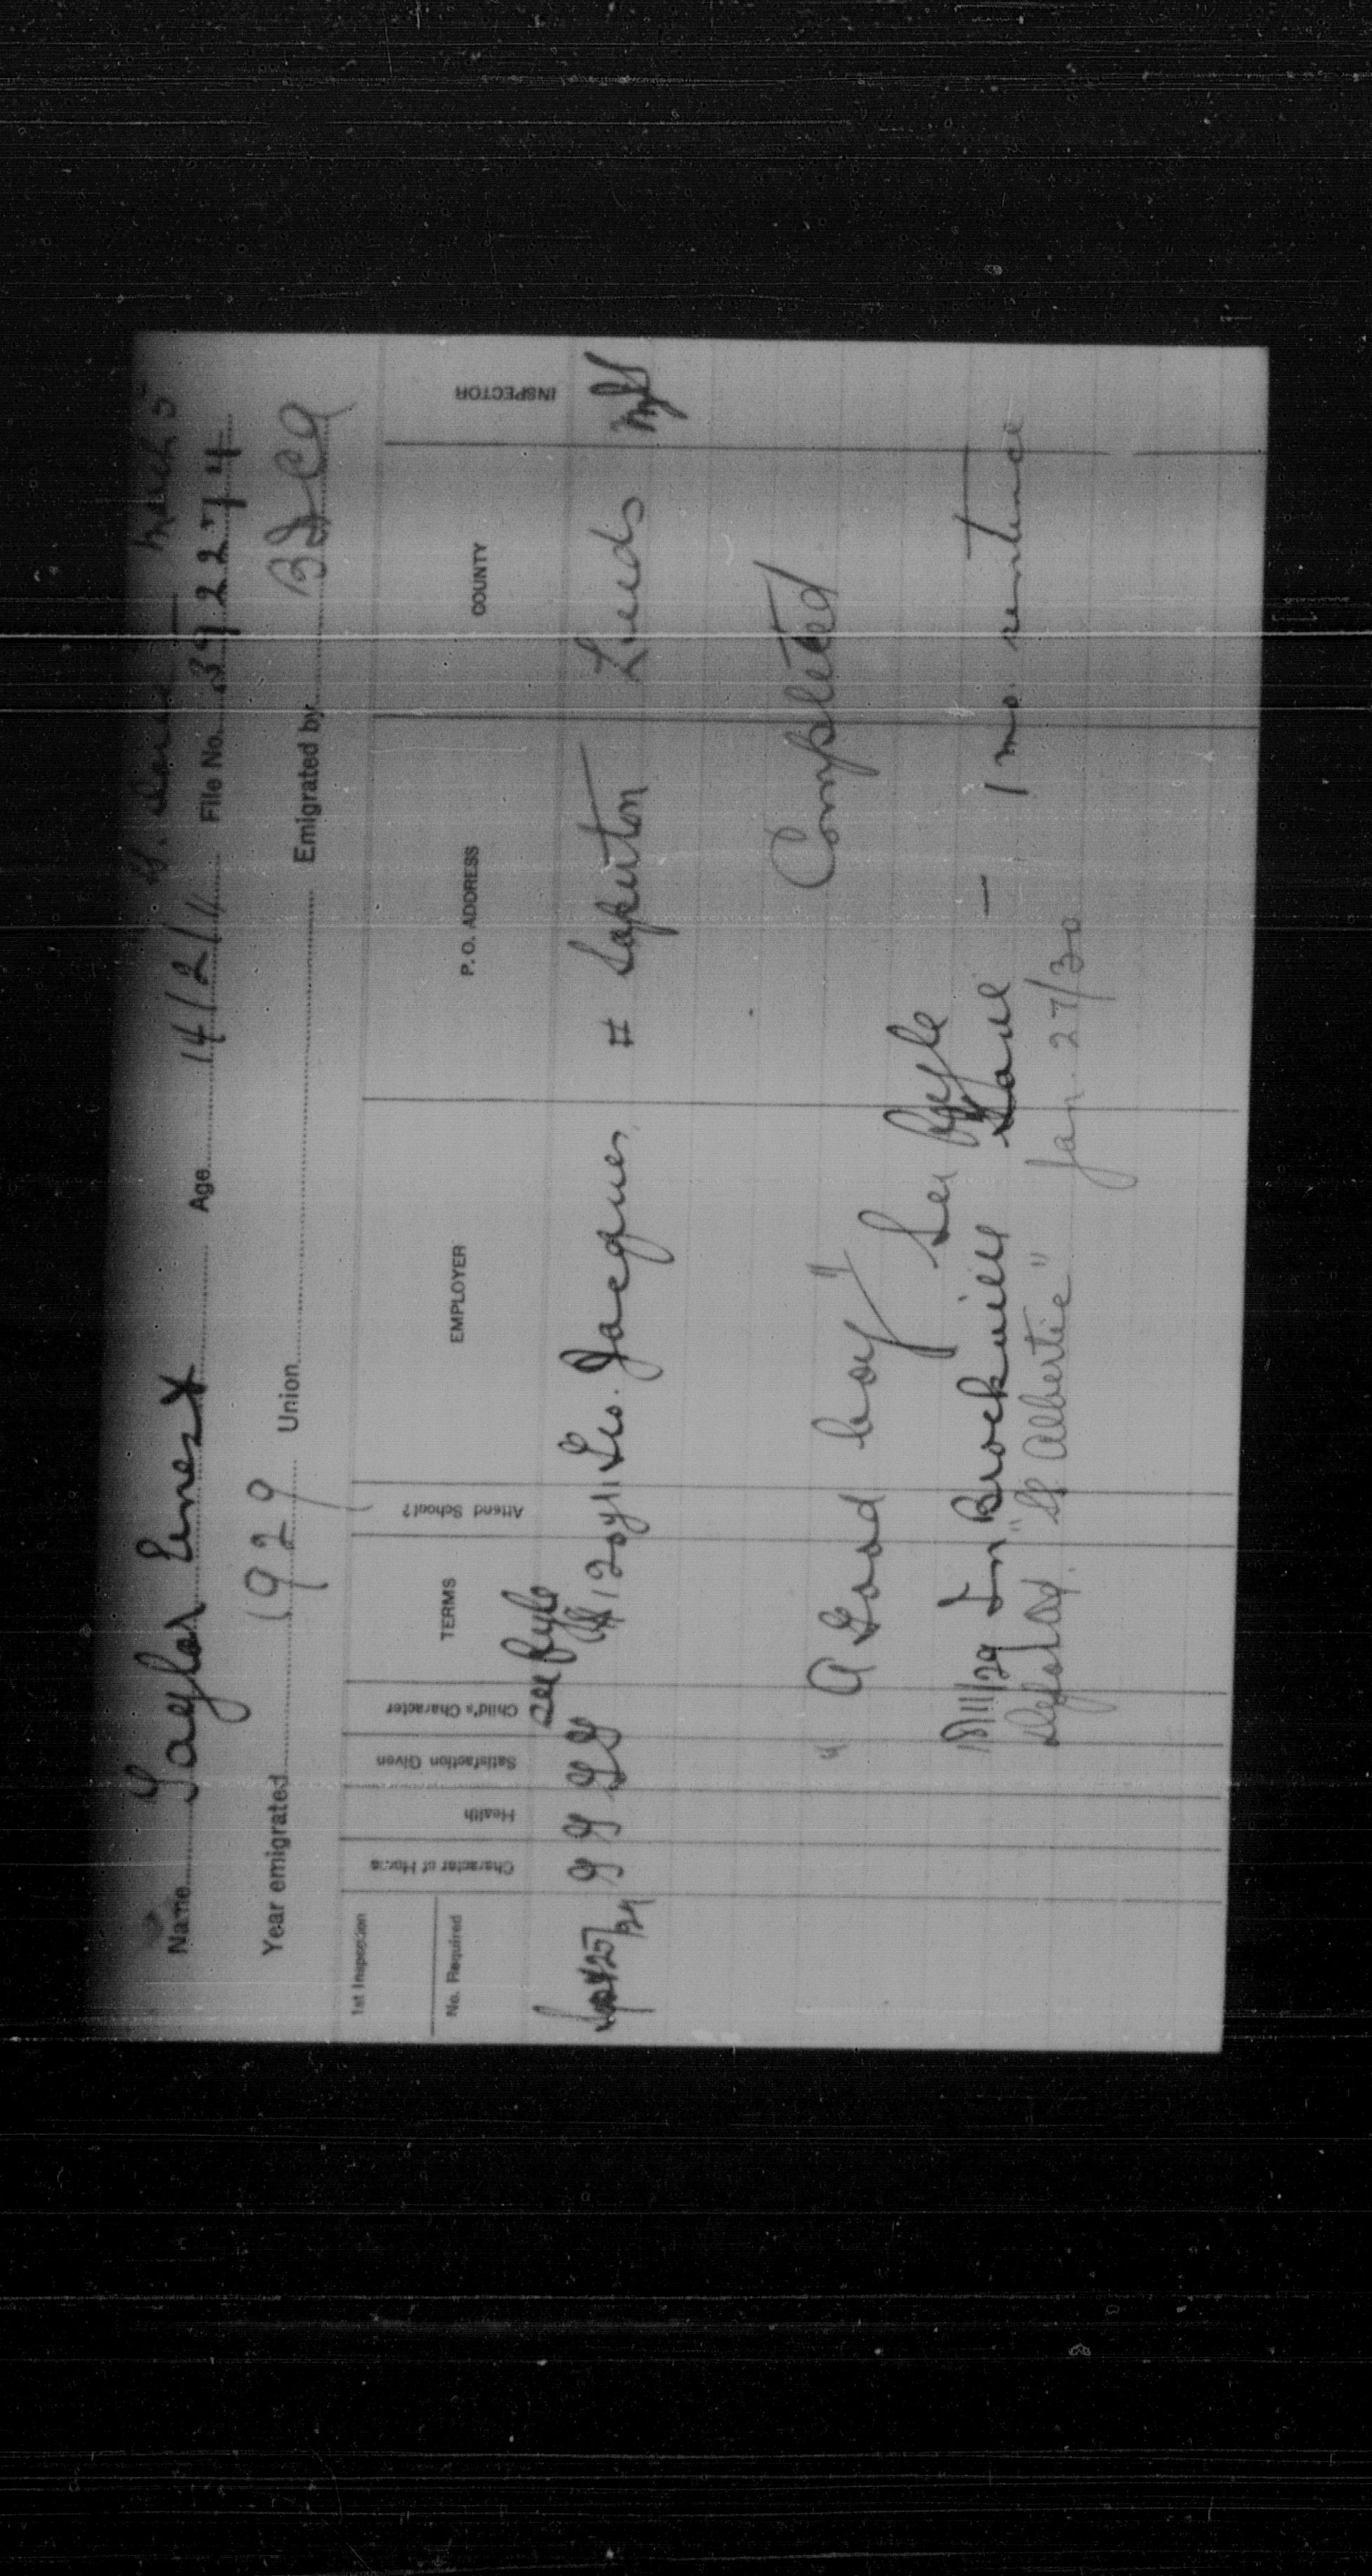 March 5
Name Taylor Ernest Age 14/2/11 File No. 392274
Year emigrated 1929 Union Emigrated by
1st Inspection
No. Required
Character of Home
Health
Satisfaction Given
Child's Character
TERMS
Attend School?
EMPLOYER
P. O. ADDRESS
COUNTY
INSPECTOR
see file
Sept 25/29 G G G G $120 yr Geo. Jacques # Soperton Leeds
Completed
"A Good boy" See file
18/11/29 In Brockville Gaol — 1 mo. sentence
Deported. "SS Albertic" Jan. 27/30